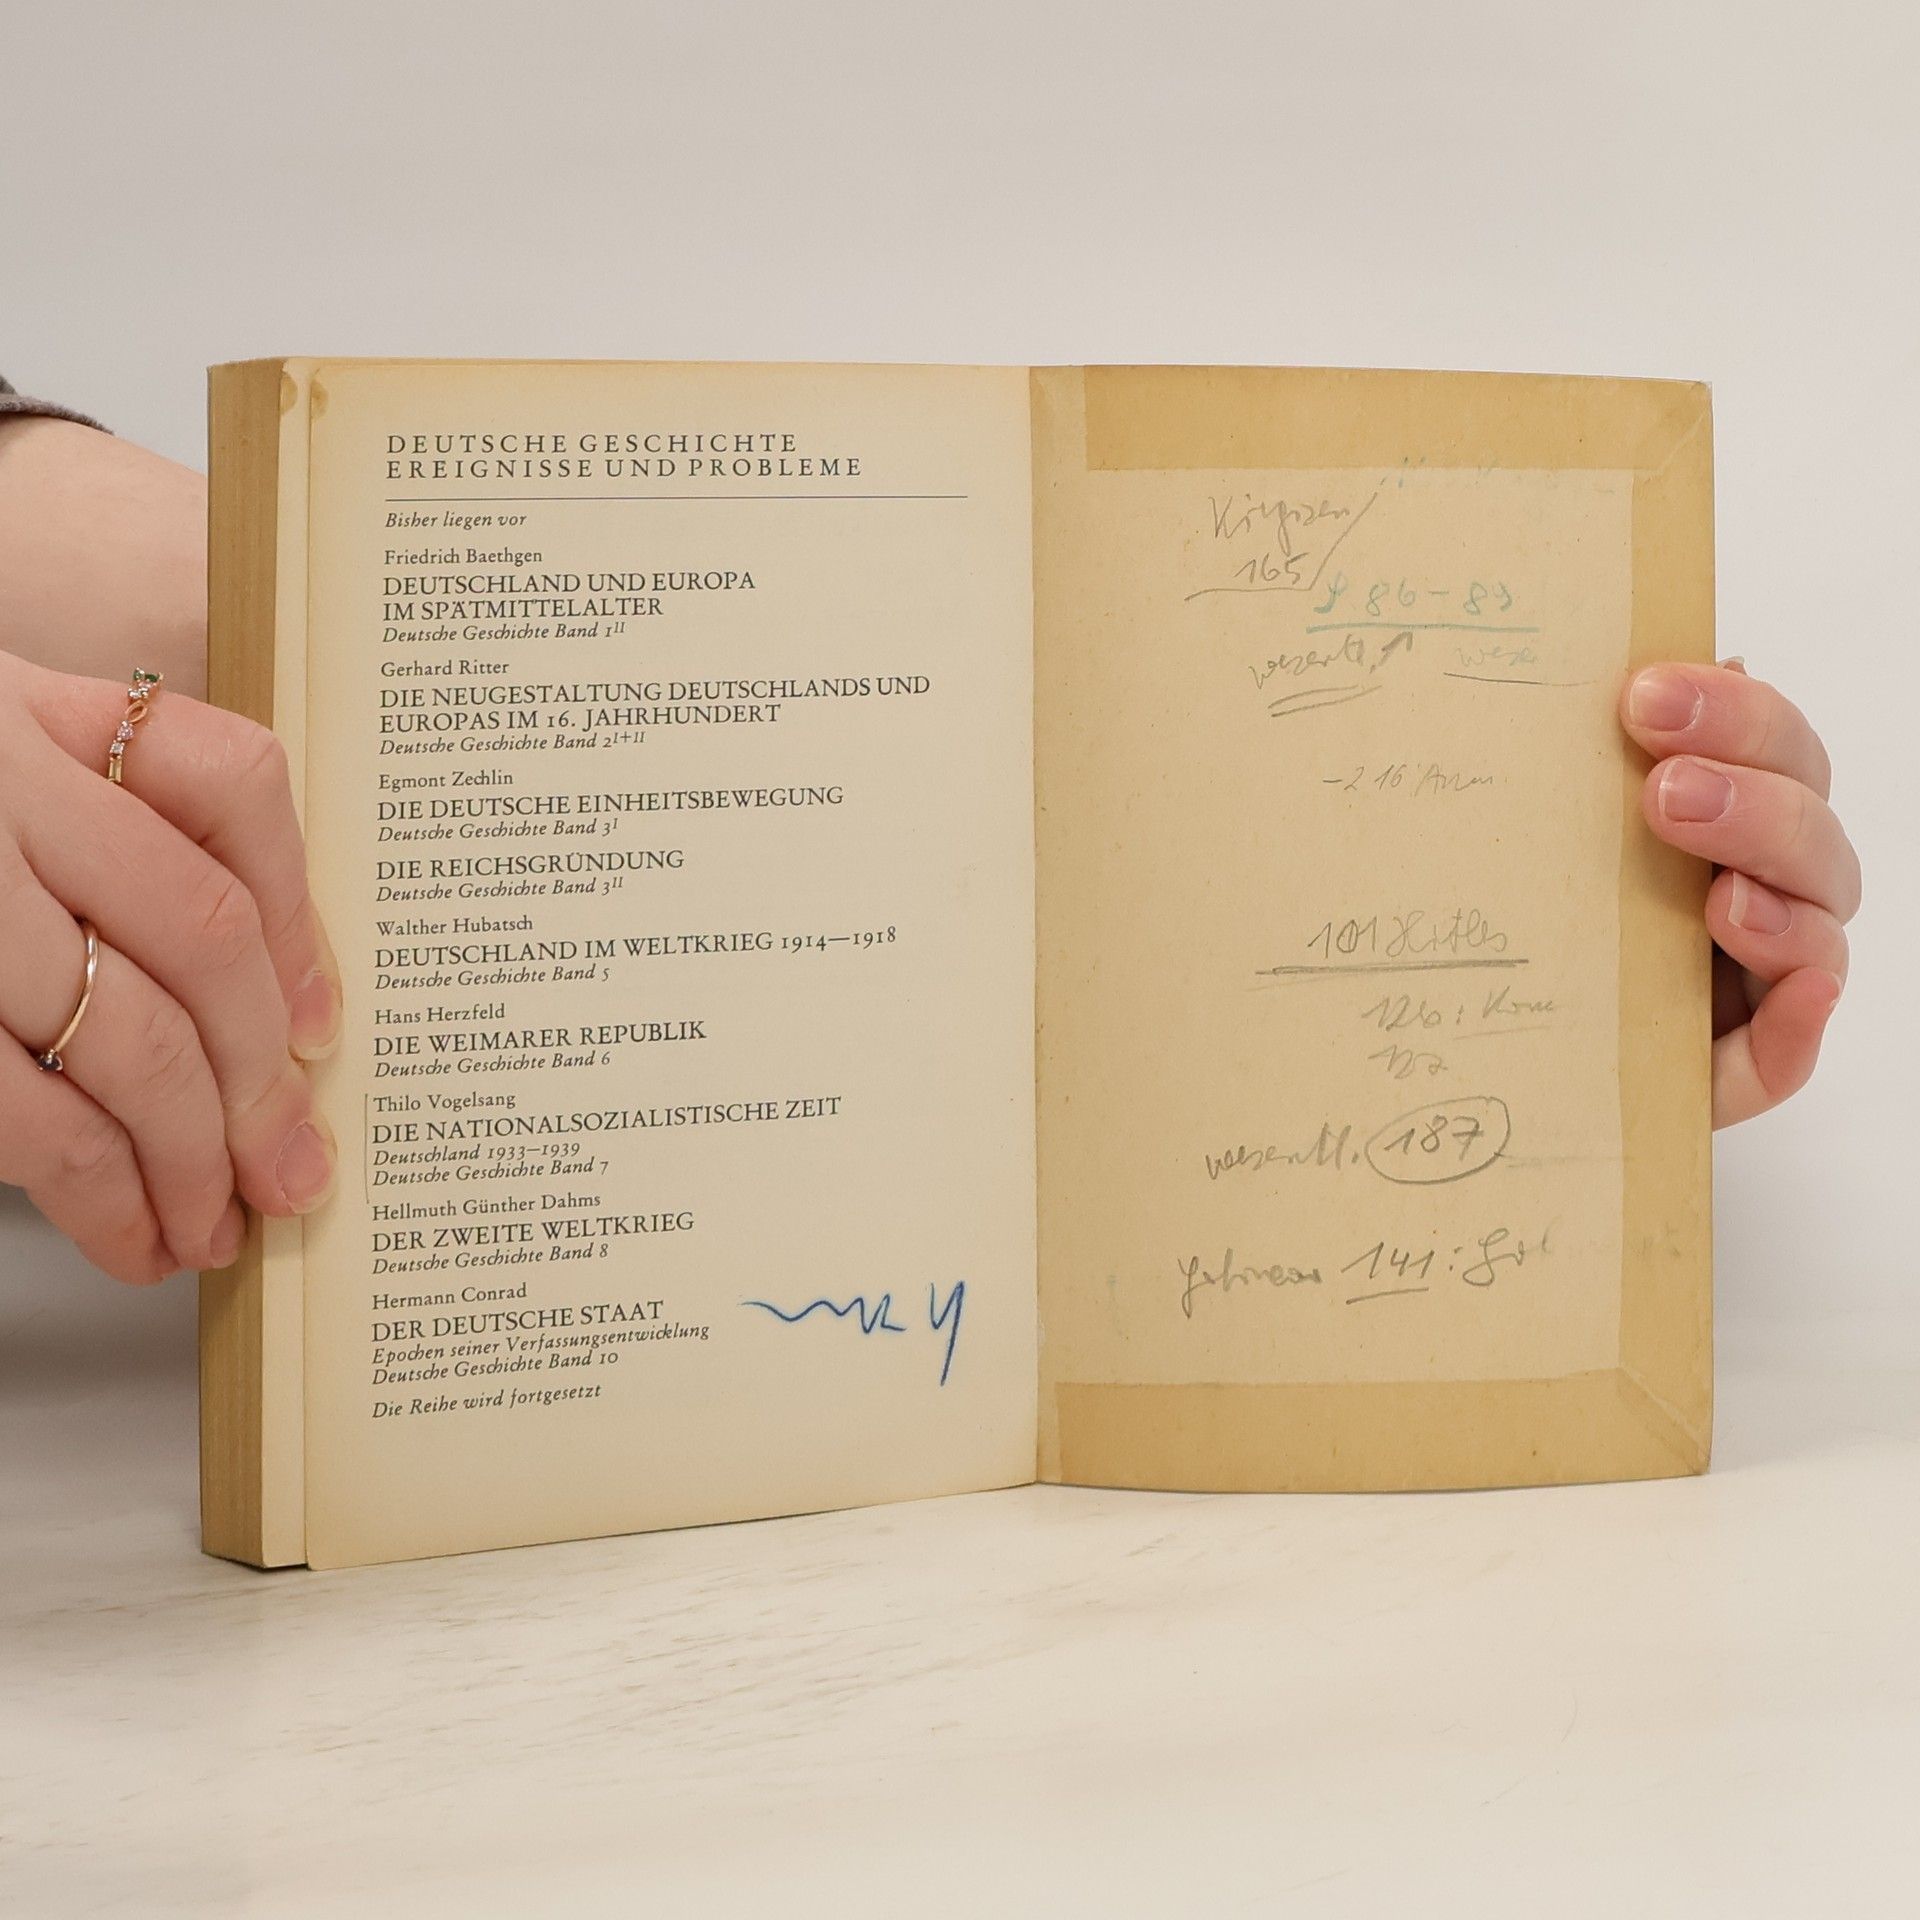 DEUTSCHE GESCHICHTE
EREIGNISSE UND PROBLEME
Bisher liegen vor
Friedrich Baethgen
DEUTSCHLAND UND EUROPA
IM SPÄTMITTELALTER
Deutsche Geschichte Band 1II
Gerhard Ritter
DIE NEUGESTALTUNG DEUTSCHLANDS UND
EUROPAS IM 16. JAHRHUNDERT
Deutsche Geschichte Band 2I+II
Egmont Zechlin
DIE DEUTSCHE EINHEITSBEWEGUNG
Deutsche Geschichte Band 3I
DIE REICHSGRÜNDUNG
Deutsche Geschichte Band 3II
Walther Hubatsch
DEUTSCHLAND IM WELTKRIEG 1914—1918
Deutsche Geschichte Band 5
Hans Herzfeld
DIE WEIMARER REPUBLIK
Deutsche Geschichte Band 6
Thilo Vogelsang
DIE NATIONALSOZIALISTISCHE ZEIT
Deutschland 1933—1939
Deutsche Geschichte Band 7
Hellmuth Günther Dahms
DER ZWEITE WELTKRIEG
Deutsche Geschichte Band 8
Hermann Conrad
DER DEUTSCHE STAAT
Epochen seiner Verfassungsentwicklung
Deutsche Geschichte Band 10
Die Reihe wird fortgesetzt
Kirgisen
165
S 86-89
wesentl.
101 Hitler
wesentl. 187
141: